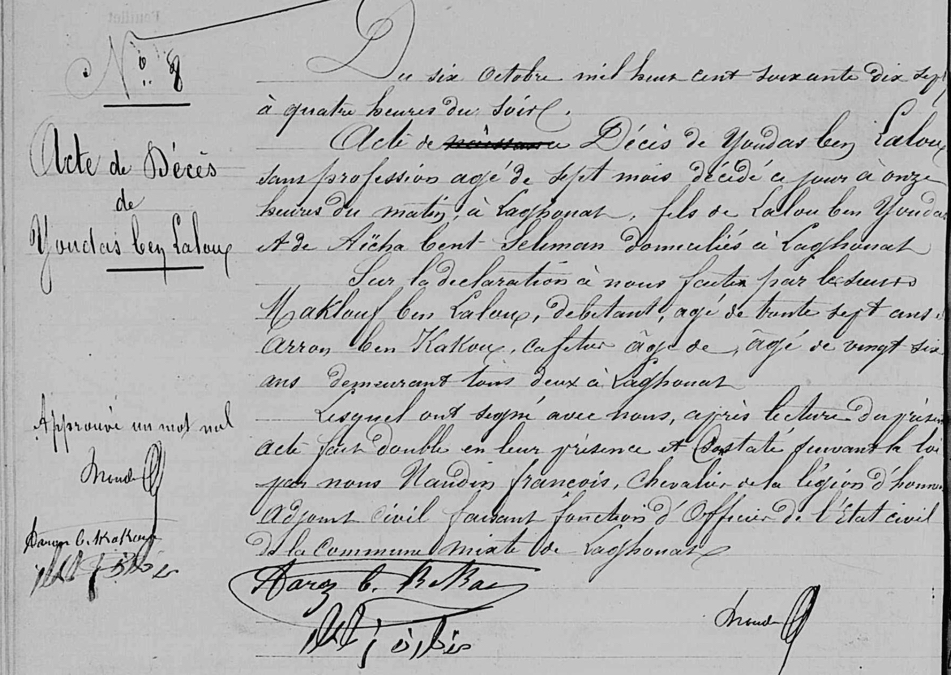 N° 8
Acte de Décès
de
Youdas ben Laloux
Approuvé un mot nul
Aaron b. Kakou
Du six Octobre mil huit cent soixante dix sept
à quatre heures du soir.
Acte de Décès de Youdas ben Laloux
sans profession agé de sept mois décédé ce jour à onze
heures du matin, à Laghouat, fils de Lalou ben Youdas
et de Aïcha bent Seliman domiciliés à Laghouat
Sur la declaration à nous faite par les
Maklouf ben Laloux, debitant, agé de trente sept ans
Arron ben Kakou, cafetier âgé de, âgé de vingt six
ans demeurant tous deux à Laghouat
Lesquel ont signé avec nous, après lecture du présent
acte fait double en leur présence et Constaté suivant la loi
par nous Naudin françois, Chevalier de la légion d'honneur
Adjoint Civil faisant fonction d'Officier de l'Etat civil
de la Commune mixte de Laghouat